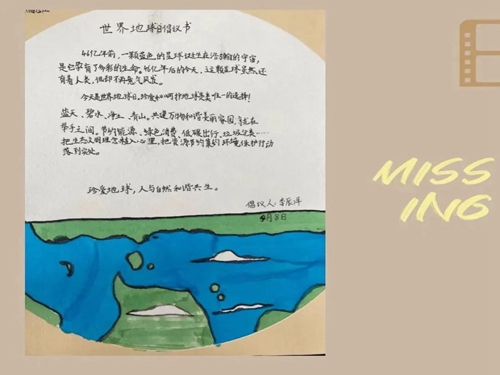 世界地球日倡议书
46亿年前,一颗蓝色的星球诞生在浩瀚的宇宙,
是它孕育了多彩的生命。46亿年后的今天,这颗星球虽然还
育着人类,但却不再意气风发。
今天是世界地球日,珍爱和呵护地球是类唯一的选择!
蓝天、碧水、净土、青山,共建万物和谐美丽家园,就在
举手之间。节约能源、绿色消费、低碳出行、垃圾分类……
把生态文明理念植入心里,把资源节约集约环境保护行动
落到实处。
珍爱地球,人与自然和谐共生。
倡议人:李辰洋
4月8日
MISS
ING